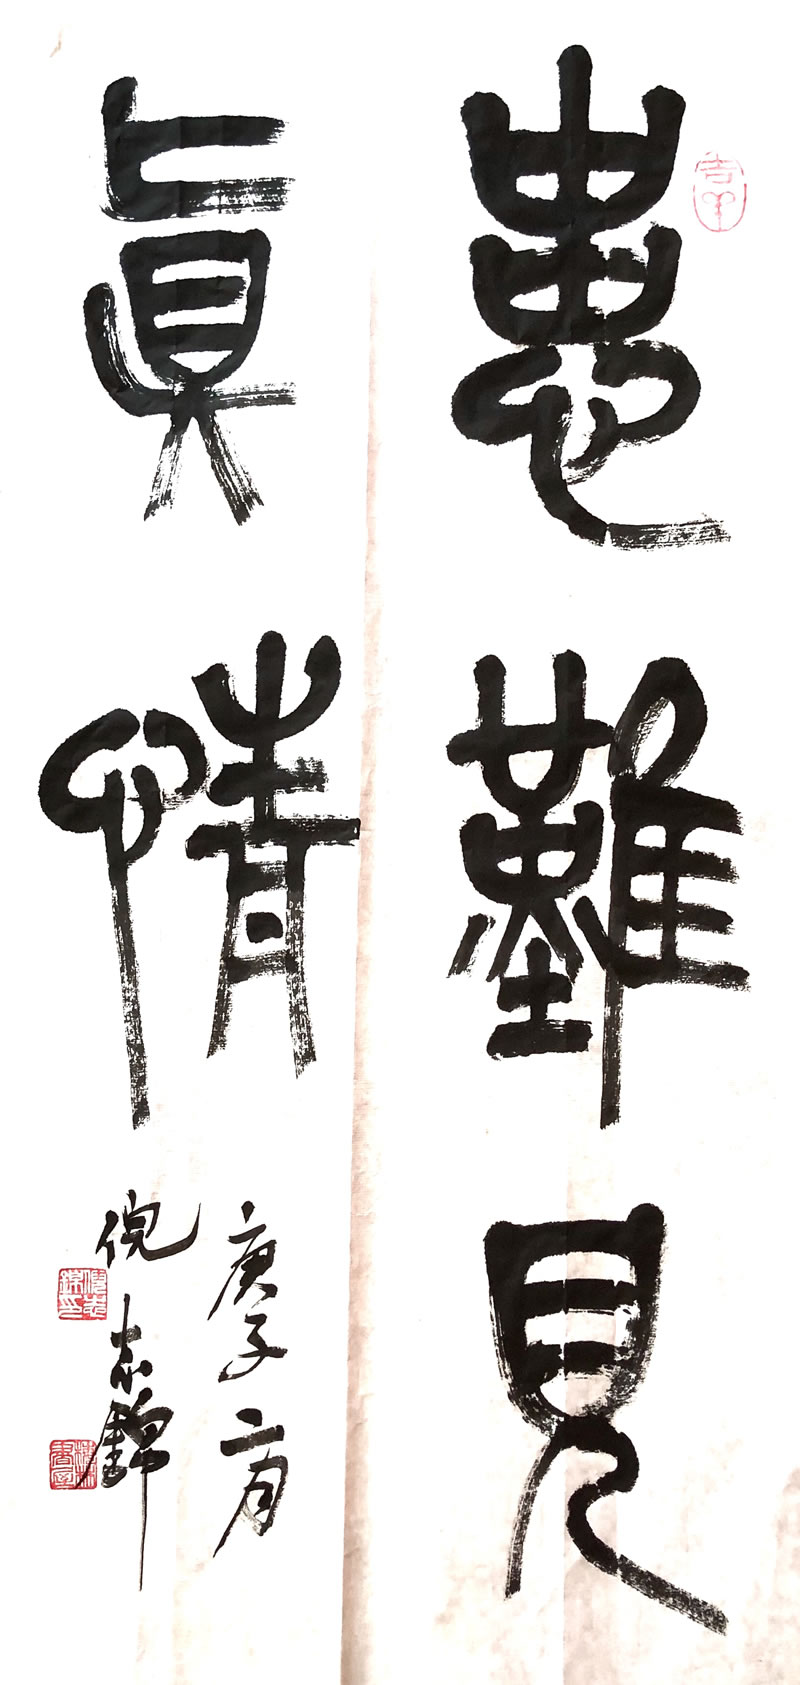 患難見
真情
庚子二月
倪志錦